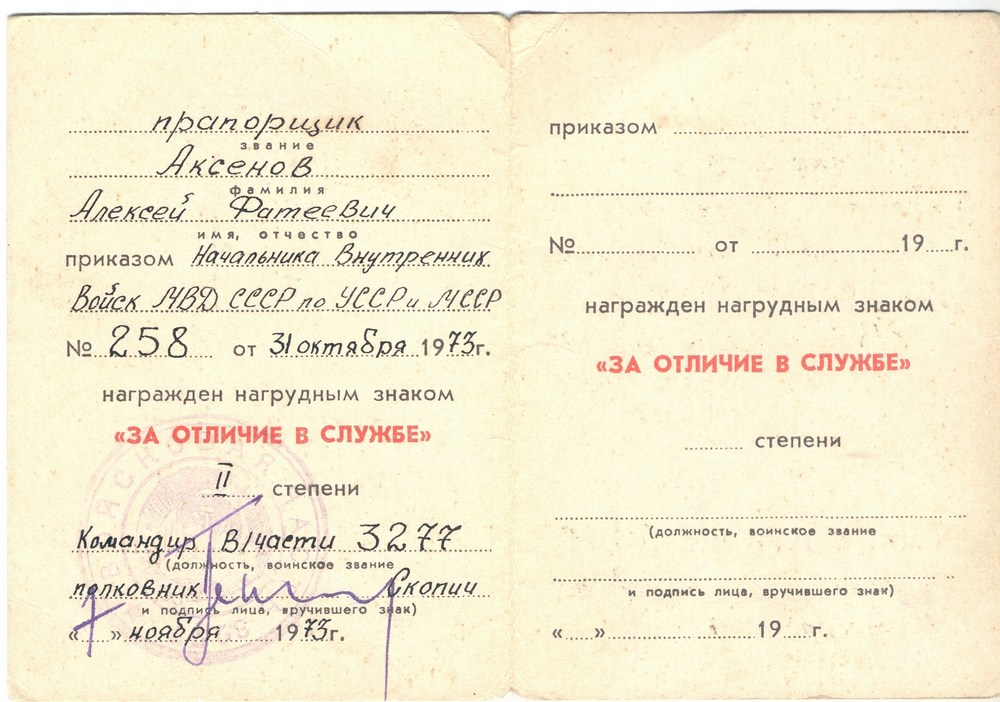 прапорщик
звание
Аксенов
фамилия
Алексей Фатеевич
имя, отчество
приказом Начальника Внутренних
Войск МВД СССР по УССР и МССР
№ 258 от 31 октября 1973г.
награжден нагрудным знаком
«ЗА ОТЛИЧИЕ В СЛУЖБЕ»
II степени
Командир в/части 3277
(должность, воинское звание
полковник Скопич
и подпись лица, вручившего знак)
«7» ноября 1973г.
приказом
№ от 19 г.
награжден нагрудным знаком
«ЗА ОТЛИЧИЕ В СЛУЖБЕ»
степени
(должность, воинское звание
и подпись лица, вручившего знак)
« » 19 г.